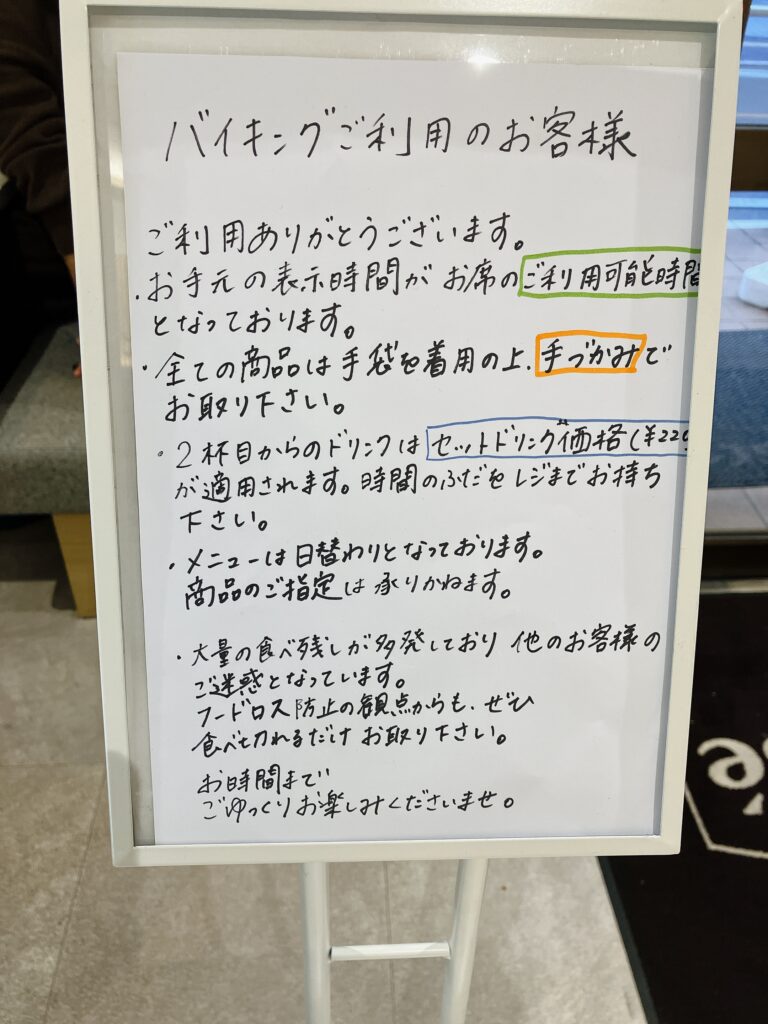 バイキングご利用のお客様
ご利用ありがとうございます。
・お手元の表示時間が お席のご利用可能時間
となっております。
・全ての商品は手袋を着用の上、手づかみで
お取り下さい。
・2杯目からのドリンクは セットドリンク価格(¥220
が適用されます。時間のふだをレジまでお持ち
下さい。
・メニューは日替わりとなっております。
商品のご指定は承りかねます。
・大量の食べ残しが多発しており 他のお客様の
ご迷惑となっています。
フードロス防止の観点からも、ぜひ
食べ切れるだけ お取り下さい。
お時間まで
ごゆっくりお楽しみくださいませ。